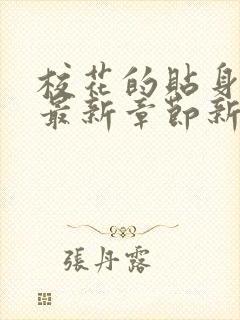 校花的貼身
最新章節新
張丹露